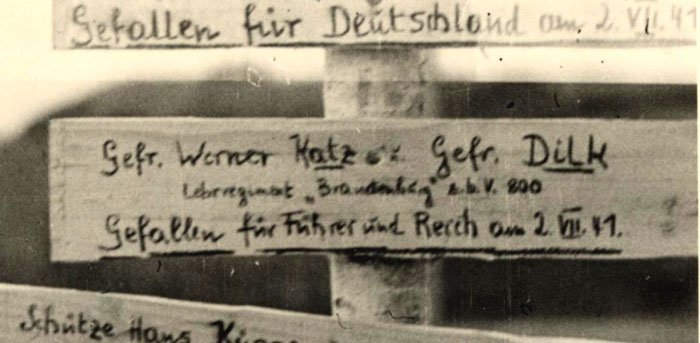 Gefallen für Deutschland am 2. VII. 41
Gefr. Werner Katz u. Gefr. Dilk
Lehrregiment „Brandenburg" z.b.V. 800
Gefallen für Führer und Reich am 2. VII. 41.
Schütze Hans